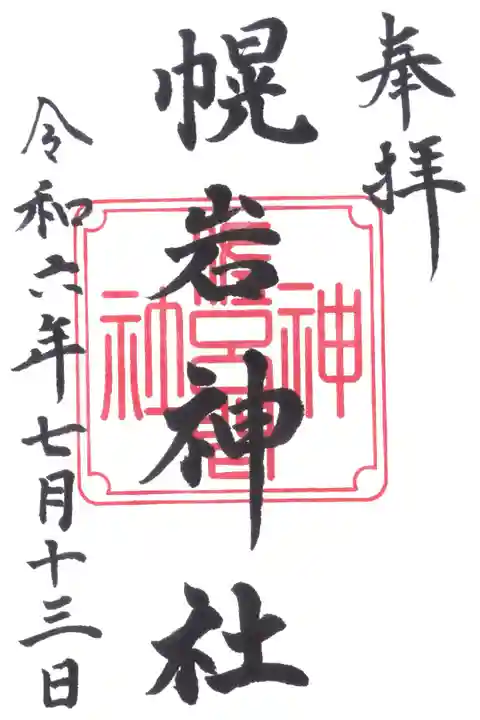 奉拝
幌岩神社
令和六年七月十三日
神
社